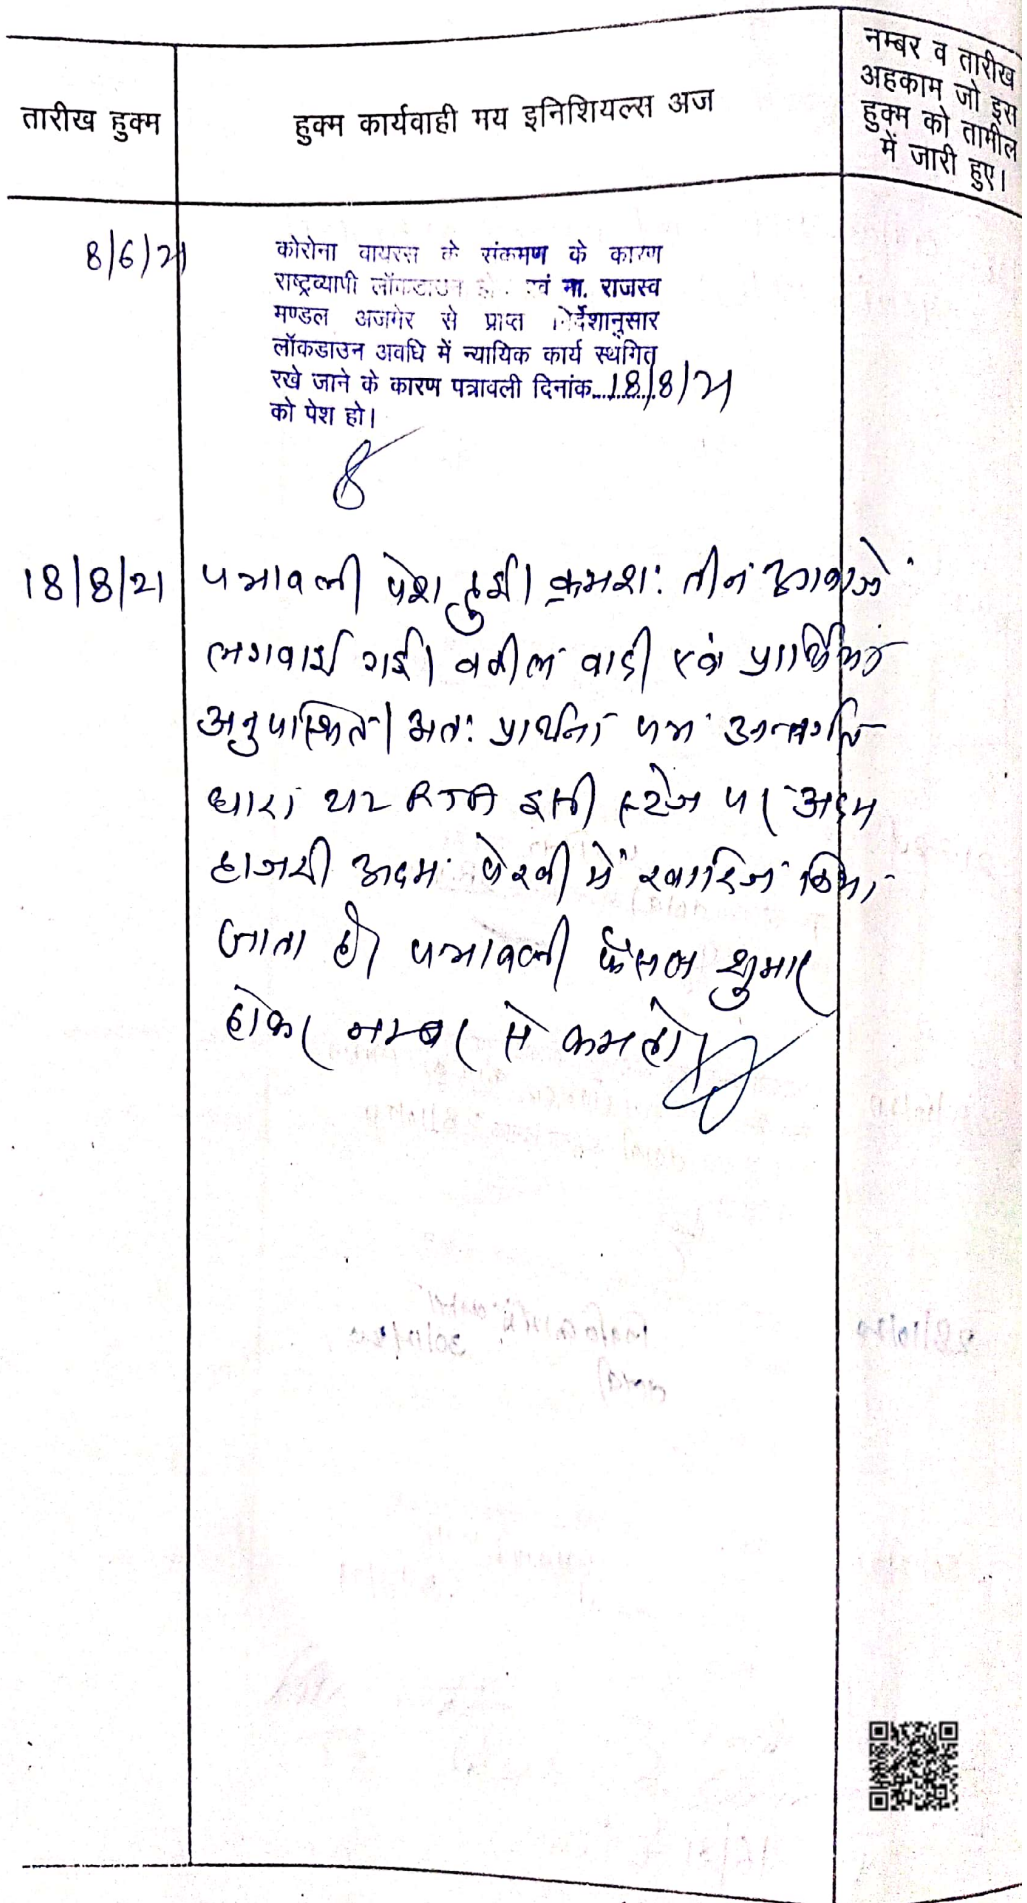 तारीख हुक्म
हुक्म कार्यवाही मय इनिशियल्स अज
नम्बर व तारीख
अहकाम जो इस
हुक्म को तामील
में जारी हुए।
8/6/21
कोरोना वायरस के संक्रमण के कारण
राष्ट्रव्यापी लॉकडाउन एवं मा. राजस्व
मण्डल अजमेर से प्राप्त निर्देशानुसार
लॉकडाउन अवधि में न्यायिक कार्य स्थगित
रखे जाने के कारण पत्रावली दिनांक 18/8/21
को पेश हो।
18/8/21
पत्रावली पेश हुई। क्रमश: तीन आवाजे
लगवाई गई। वकील वादी एवं
अनुपस्थित। अत: प्रार्थना पत्र अन्तर्गत
धारा RTA इसी स्टेज पर अदम
हाजरी अदम पैरवी में खारिज किया
जाता है। पत्रावली फैसल शुमार
होकर नम्बर से कम हो।